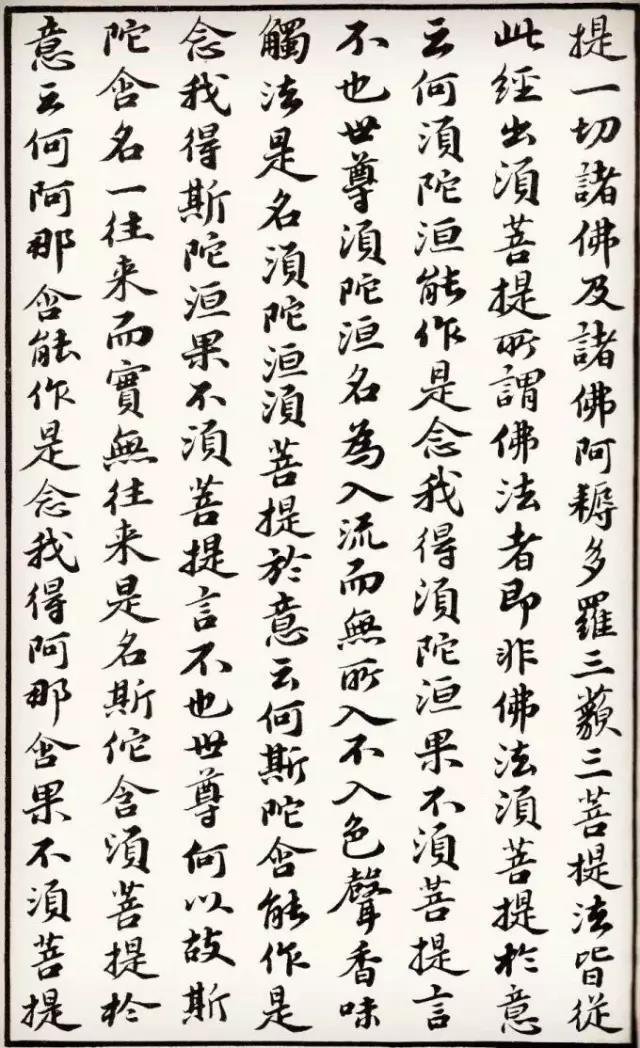 提一切諸佛及諸佛阿耨多羅三藐三菩提法皆從
此經出須菩提所謂佛法者即非佛法須菩提於意
云何須陀洹能作是念我得須陀洹果不須菩提言
不也世尊須陀洹名為入流而無所入不入色聲香味
觸法是名須陀洹須菩提於意云何斯陀含能作是
念我得斯陀洹果不須菩提言不也世尊何以故斯
陀含名一往来而實無往来是名斯佗含須菩提於
意云何阿那含能作是念我得阿那含果不須菩提